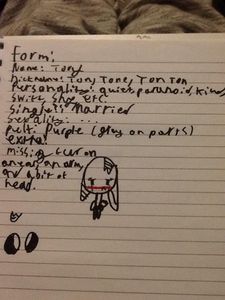 Form:
Name: Tony
Nickname: Tony Tone, Ton Ton
Personality: quiet, paranoid, kind,
switz, shy, etc.
Single/: Married
sexality: ...
pelt: Purple (grey on parts)
extra:
missing fur on
an ear, an arm,
and a bit of
head.